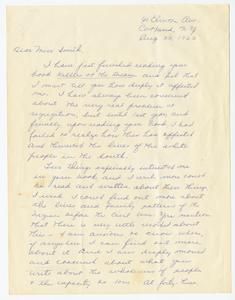 41 Clinton Ave.
Cortland, N.Y.
Aug 22, 1962
Dear Miss Smith,
I have just finished reading your
book Killers of the Dream and felt that
I must tell you how deeply it affected
me. I have always been concerned
about the very real problem of
segregation, but until last year and
finally upon reading your book I had
failed to realize how this has affected
and thwarted the lives of the white
people in the South.
Two things especially interested me
in your book and I wish more could
be read and written about these things.
I wish I could find out more about
the lives and family patterns of the
Negro before the Civil War. You mention
that there is very little about
this - I am anxious to know where,
if anywhere I can find out more
about it. And I am deeply moved
and concerned about what you
write about the wholeness of people
& the capacity to love. At forty-two